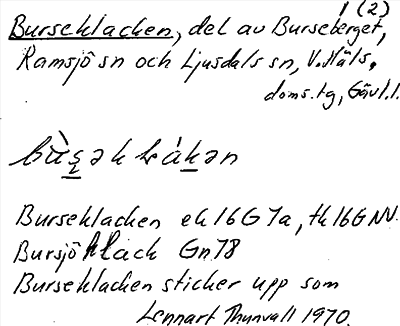 1 (2)
Burseklacken, del av Burseberget,
Ramsjö sn och Ljusdals sn, V. Häls.
doms. tg, Gävl. l.
bùs̱əkḵláḵən
Burseklacken ek 16G 7a, tk 16G NV.
Bursjöklack Gn 78
Burseklacken sticker upp som
Lennart Thunvall 1970.